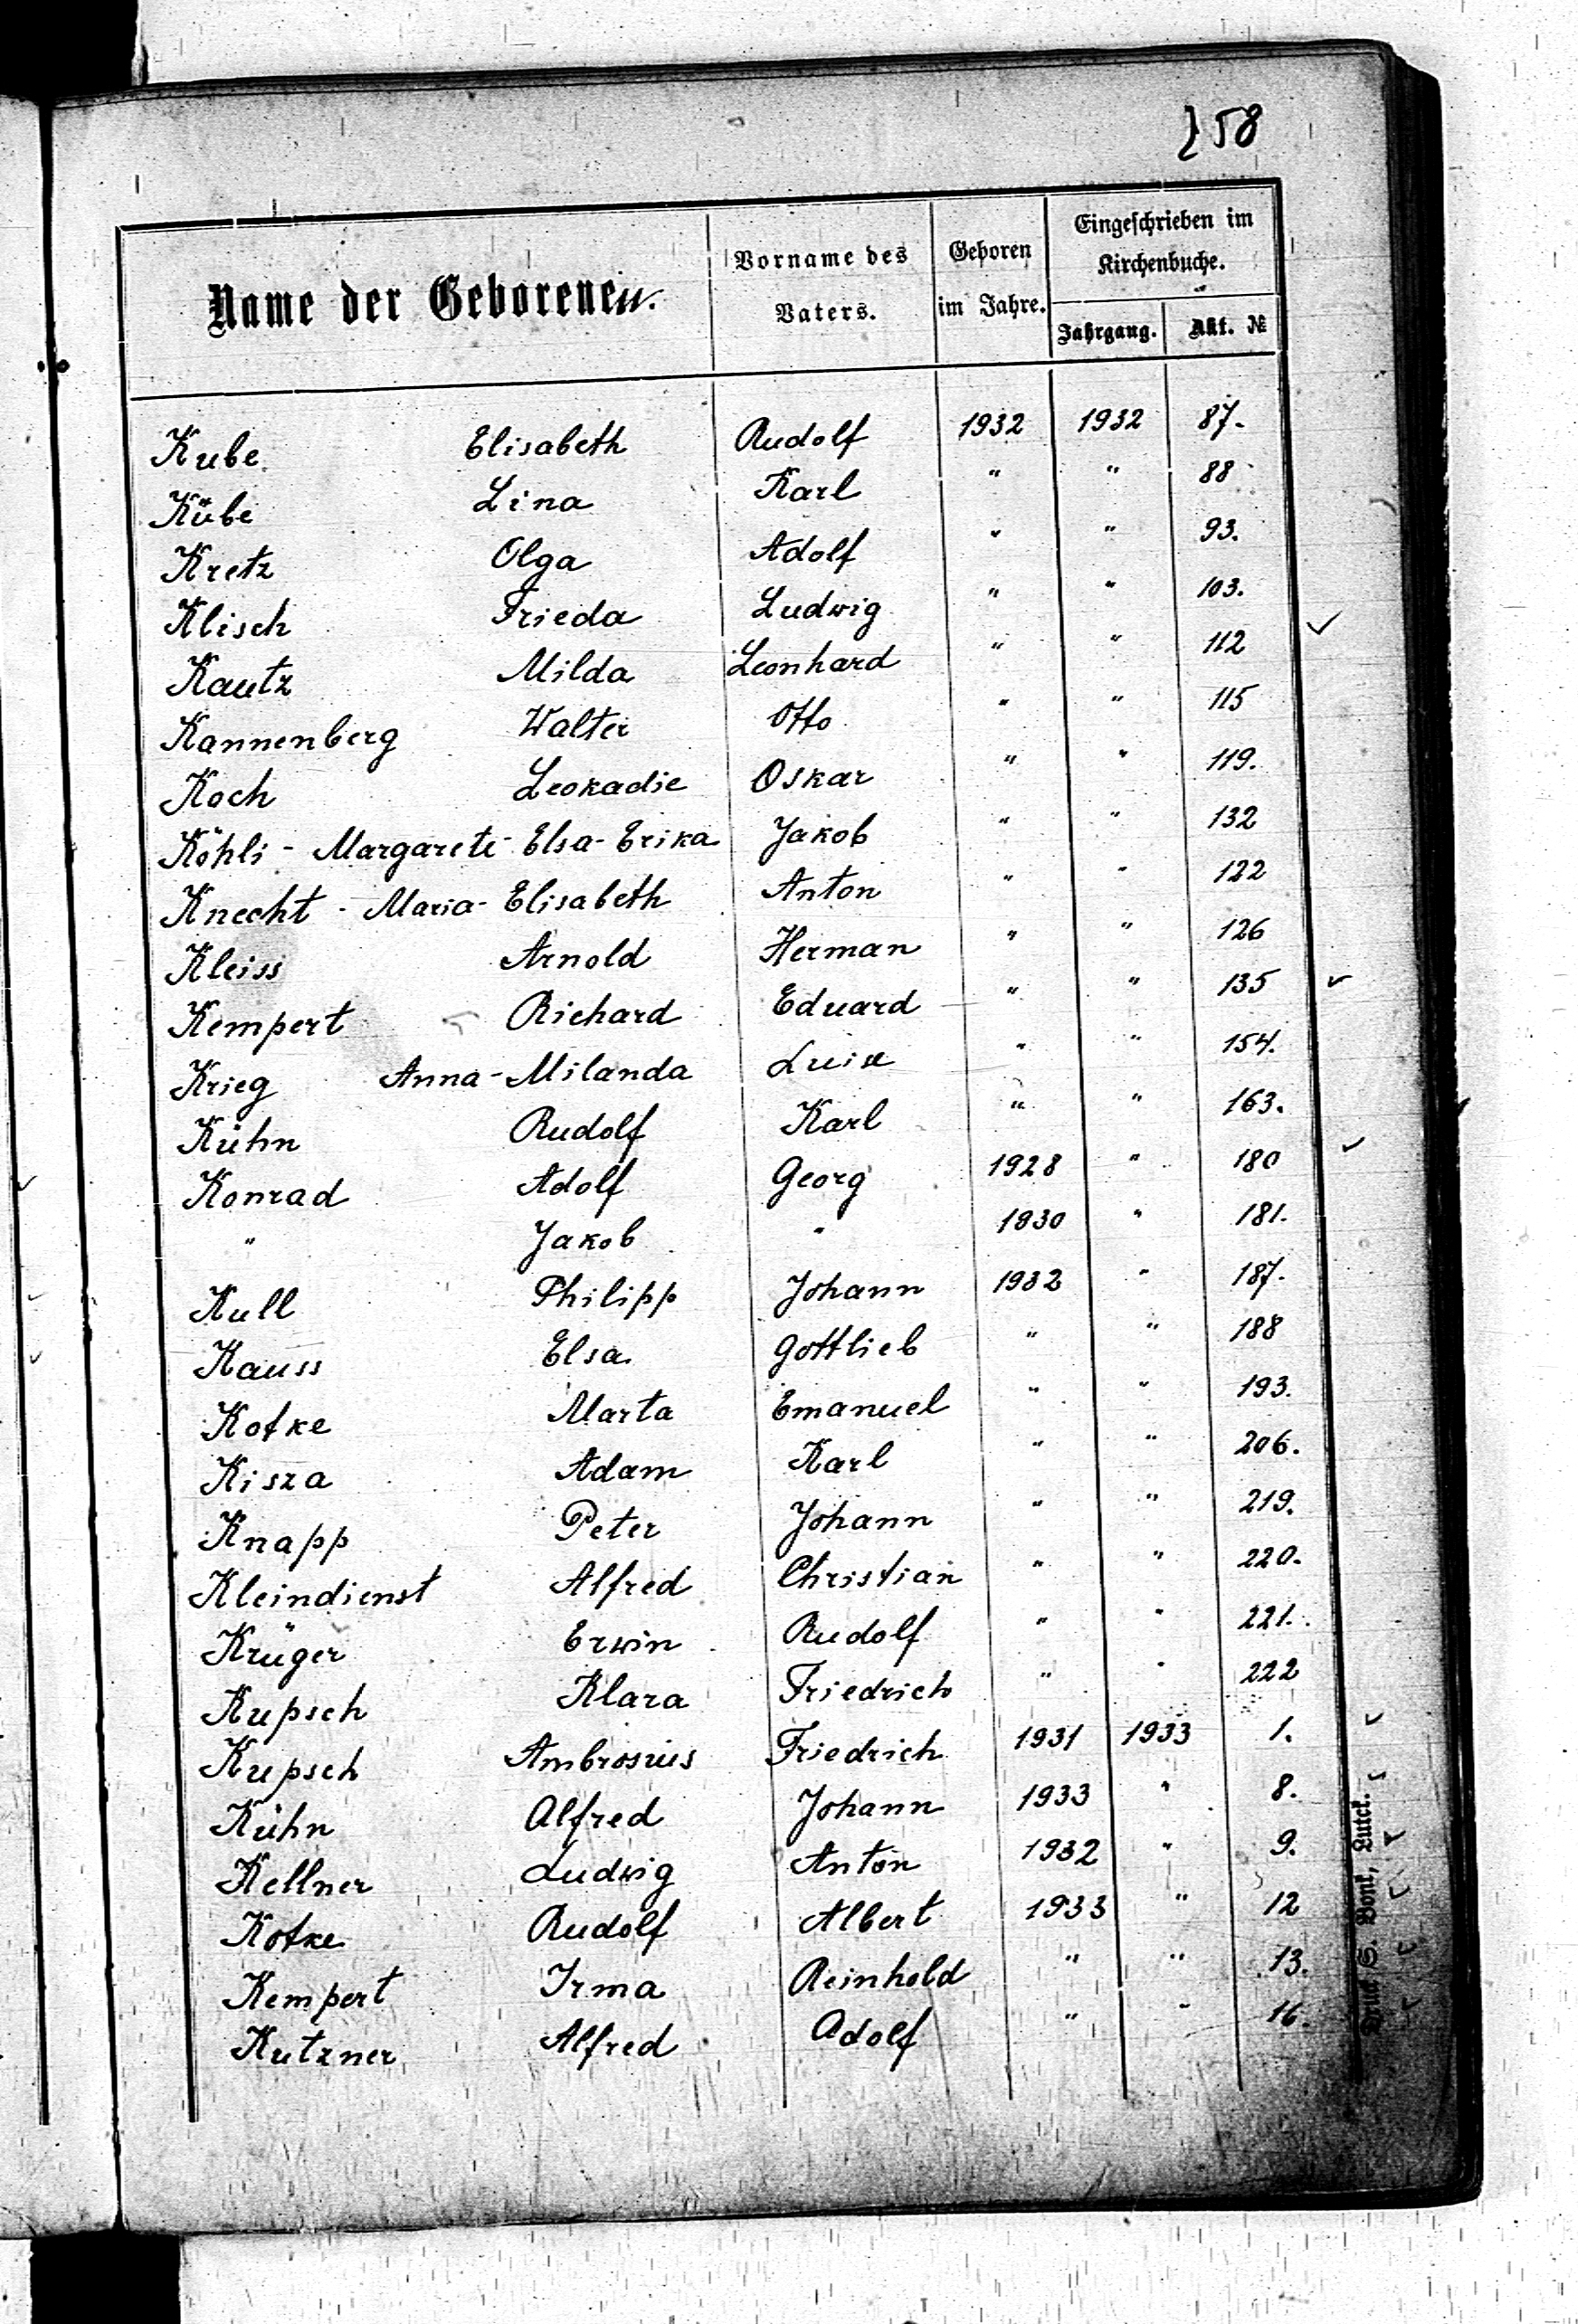 258
Name der Geborenen.
Vorname des Vaters.
Geboren im Jahre.
Eingeschrieben im Kirchenbuche.
Jahrgang.
Akt. №
Kube Elisabeth Rudolf 1932 1932 87.
Kübe Lina Karl " " 88
Kretz Olga Adolf " " 93.
Klisch Frieda Ludwig " " 103.
Kautz Milda Leonhard " " 112
Kannenberg Walter Otto " " 115
Koch Leokadie Oskar " " 119.
Köhli - Margarete - Elsa - Erika Jakob " " 132
Knecht - Maria - Elisabeth Anton " " 122
Kleiss Arnold Herman " " 126
Kempert Richard Eduard " " 135
Krieg Anna - Milanda Luise " " 154.
Kühn Rudolf Karl " " 163.
Konrad Adolf Georg 1928 " 180
" Jakob " 1930 " 181.
Kull Philipp Johann 1932 " 187.
Kauss Elsa Gottlieb " " 188
Kotke Marta Emanuel " " 193.
Kisza Adam Karl " " 206.
Knapp Peter Johann " " 219.
Kleindienst Alfred Christian " " 220.
Krüger Erwin Rudolf " " 221.
Kupsch Klara Friedrich " " 222
Kupsch Ambrosius Friedrich 1931 1933 1.
Kühn Alfred Johann 1933 " 8.
Kellner Ludwig Anton 1932 " 9.
Kotke Rudolf Albert 1933 " 12
Kempert Irma Reinhold " " 13.
Kutzner Alfred Adolf " " 16.
Druck S. Bont, Luck.